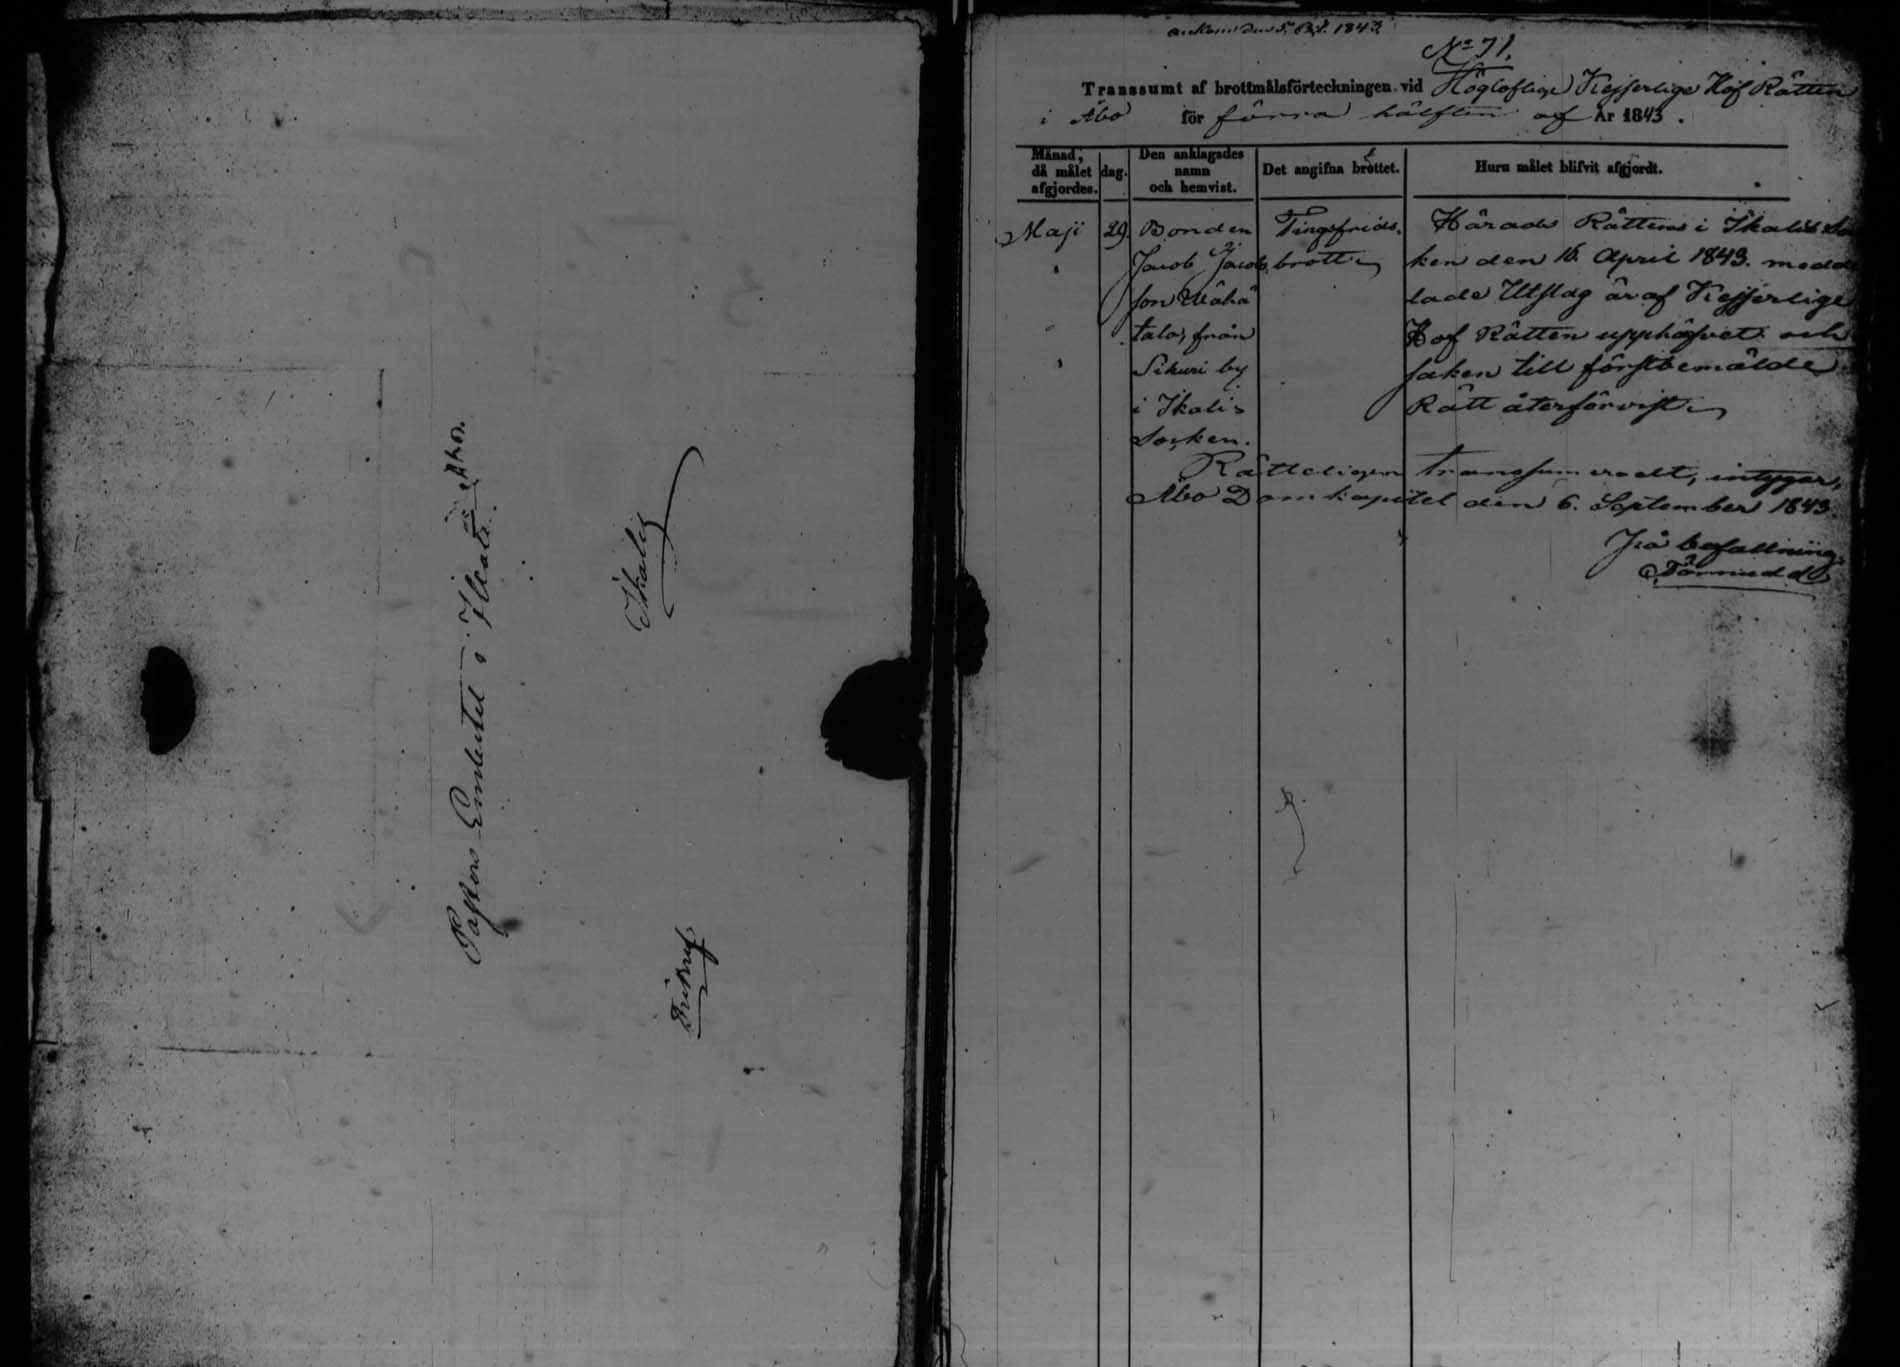 Pastors Embetet i Ikalis
Åbo.
Ikalis
Fribref.
ankom den 5. Oct. 1843.
No 71.
Transsumt af brottmålsförteckningen vid Högloflige Kejserlige Hof Rätten
i Åbo för förra hälften af År 1843.
Månad, då målet afgjordes.
dag.
Den anklagades namn och hemvist.
Det angifna brottet.
Huru målet blifvit afgjordt.
Maji 29. Bonden Tingsfrids- Härads Rättens i Ikalis Soc
Jacob Jacobs brott ken den 16. April 1843. medde
son Wähä lade Utslag är af Kejserlige
talo, från Hof Rätten upphäfvet och
Sikuri by saken till förstbemälde
i Ikalis Rätt återförvist
Socken.
Rätteligen transsumeradt, intygar,
Åbo Domkapitel den 6. September 1843.
På befallning